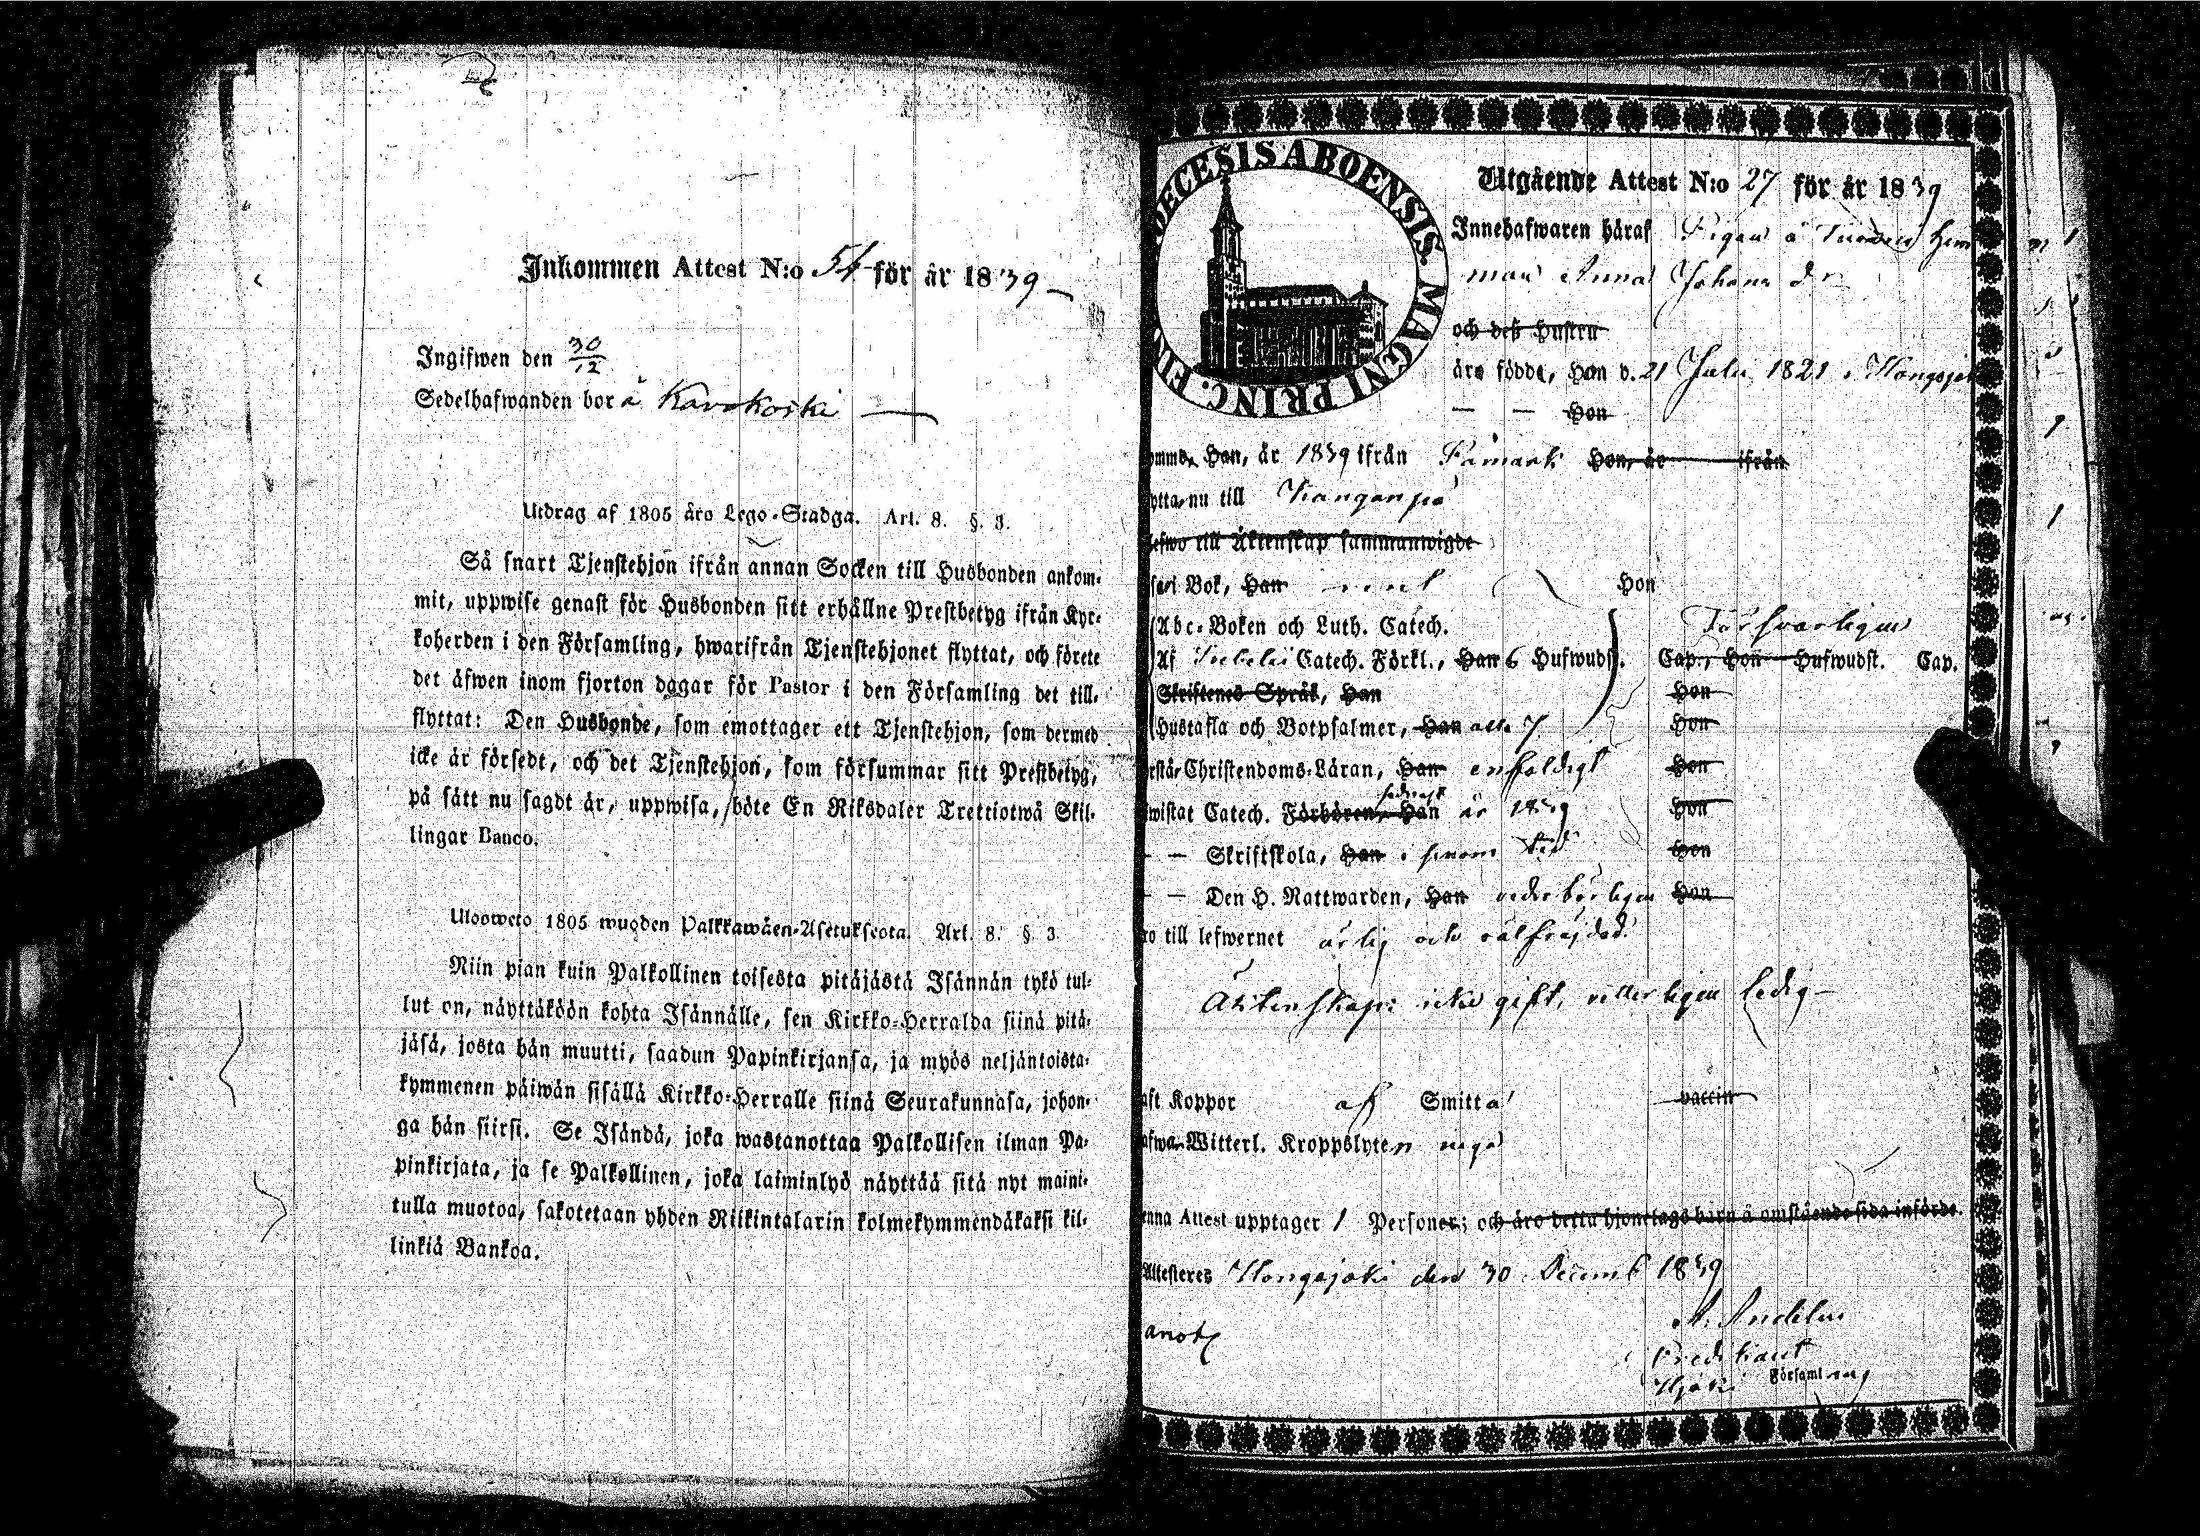 Inkommen Attest N:o 54 för år 1839
Ingifwen den 30/12
Sedelhafwanden bor å Karokoski
Utdrag af 1805 års Lego-Stadga. Art. 8. §. 3.
Så snart Tjenstehjon ifrån annan Socken till Husbonden ankom-
mit, uppwise genast för Husbonden sitt erhållne Prestbetyg ifrån Kyr-
koherden i den Församling, hwarifrån Tjenstehjonet flyttat, och förete
det äfwen inom fjorton dagar för Pastor i den Församling det till-
flyttat: Den Husbonde, som emottager ett Tjenstehjon, som dermed
icke är försedt, och det Tjenstehjon, som försummar sitt Prestbetyg,
på sätt nu sagdt är, uppwisa, böte En Riksdaler Trettiotwå Skil-
lingar Banco.
Ulosweto 1805 wuoden Palkkawäen-Asetuksesta. Art. 8. §. 3.
Niin pian kuin Palkollinen toisesta pitäjästä Isännän tykö tul-
lut on, näyttäköön kohta Isännälle, sen Kirkko-Herralda siinä pitä-
jäsä, josta hän muutti, saadun Papinkirjansa, ja myös neljäntoista-
kymmenen päiwän sisällä Kirkko-Herralle siinä Seurakunnasa, johon-
ga hän siirsi. Se Isändä, joka wastanottaa Palkollisen ilman Pa-
pinkirjata, ja se Palkollinen, joka laiminlyö näyttää sitä nyt maini-
tulla muotoa, sakotetaan yhden Riikintalarin kolmekymmendäkaksi kil-
linkiä Bankoa.
DECESIS ABOENSIS. MAGNI PRINC. FIN
Utgående Attest N:o 27 för år 1839
Innehafwaren häraf Pigan å Hem
man Anna Johans dr
och deß Hustru
äro födde, Han d. 21 Julii 1821 i Hongojo
— — Hon
omme, Han, år 1839 ifrån Påmark Hon, år ifrån
ytta nu till Kangonpä
lefwo till Äktenskap sammanwigde
sari Bok, Han rent Hon
Abc-Boken och Luth. Catech. Försvarligen
Af Catech. Förkl., Han 6 Hufwudst. Cap., Hon Hufwudst. Cap.
Skriftenes Språk, Han Hon
Hustafla och Botpsalmer, Han alla 7 Hon
rstår Christendoms-Läran, Han enfaldigt Hon
wistat Catech. Förhören, Han sednast år 1839 Hon
— — Skriftskola, Han i sinom tid Hon
— — Den H. Nattwarden, Han vederbörligen Hon
ro till lefwernet ärlig och välfräjdad.
Äktenskap: icke gift, vitterligen ledig
aft Koppor af Smitta vaccin
afwa Witterl. Kroppslyten inga
enna Attest upptager 1 Personer; och äro detta hjonelags barn å omstående sida införde.
Attesteres Hongojoki den 30 Decemb 1839
anot
A. Andelin
Predikant
Hjoki Församling